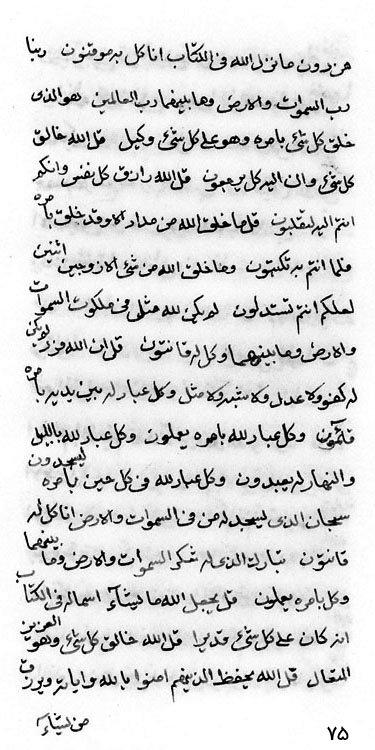 من دون ما نزل الله فی الکتاب انا کل به موقنون ربنا
رب السموات والارض وما بینهما رب العالمین هو الذی
خلق کل شیء بامره وهو علی کل شیء وکیل قل الله خالق
کل شیء وان الیه کل یرجعون قل الله رازق کل نفس وانکم
انتم الیه لتقلبون قل ما خلق الله من مداد الا وقد خلق بامره
قلما انتم به تکتبون وما خلق الله من شیء الا زوجین اثنین
لعلکم انتم تستدلون لم یکن لله مثل فی ملکوت السموات
والارض وما بینهما وکل له قانتون قل ان الله فرد لم یکن
له کفو ولا عدل ولا شبه ولا مثل وکل عباد له بین یدیه بامره
قائمون وکل عباد لله بامره یعملون وکل عباد لله باللیل
والنهار له یعبدون وکل عباد لله فی کل حین بامره یسجدون
سبحان الذی یسجد له من فی السموات والارض انا کل له
قانتون تبارک الذی له ملک السموات والارض وما بینهما
وکل بامره یعملون قل یجعل الله ما یشآء اسماله فی الکتاب
انه کان علی کل شیء قدیرا قل الله خالق کل شیء وهو العزیز
المتعال قل الله یحفظ الذینهم امنوا بالله وایاته ویرزق
من یشآء
۷۵